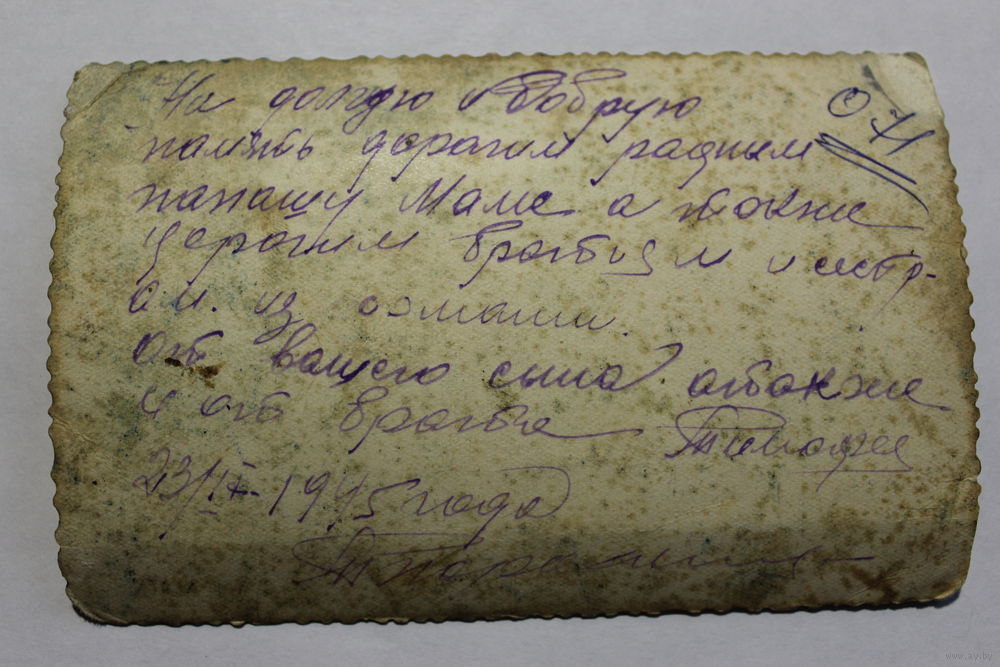 На долгую и Добрую
память дорагим радним
папашу Маме а также
дарагим братцам и сестр-
ам. из
от вашего сына атакже
и от брата Тимофея
23/IX-1945 года
www.ay.by